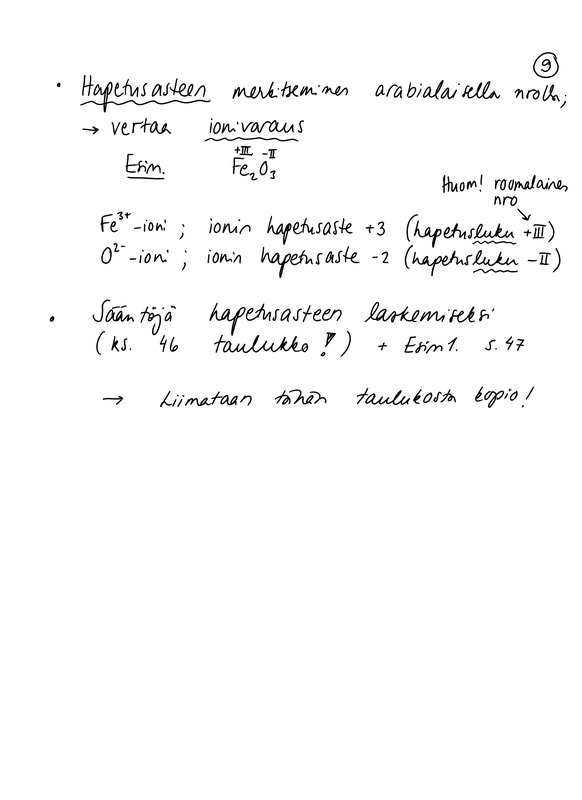 9
• Hapetusasteen merkitseminen arabialaisella nrolla;
→ vertaa ionivaraus
+III -II
Esim. Fe₂O₃
Huom! roomalainen
nro
Fe³⁺-ioni ; ionin hapetusaste +3 (hapetusluku +III)
O²⁻-ioni ; ionin hapetusaste -2 (hapetusluku -II)
• Sääntöjä hapetusasteen laskemiseksi
(ks. 46 taulukko!) + Esim 1. s. 47
→ Liimataan tähän taulukosta kopio!